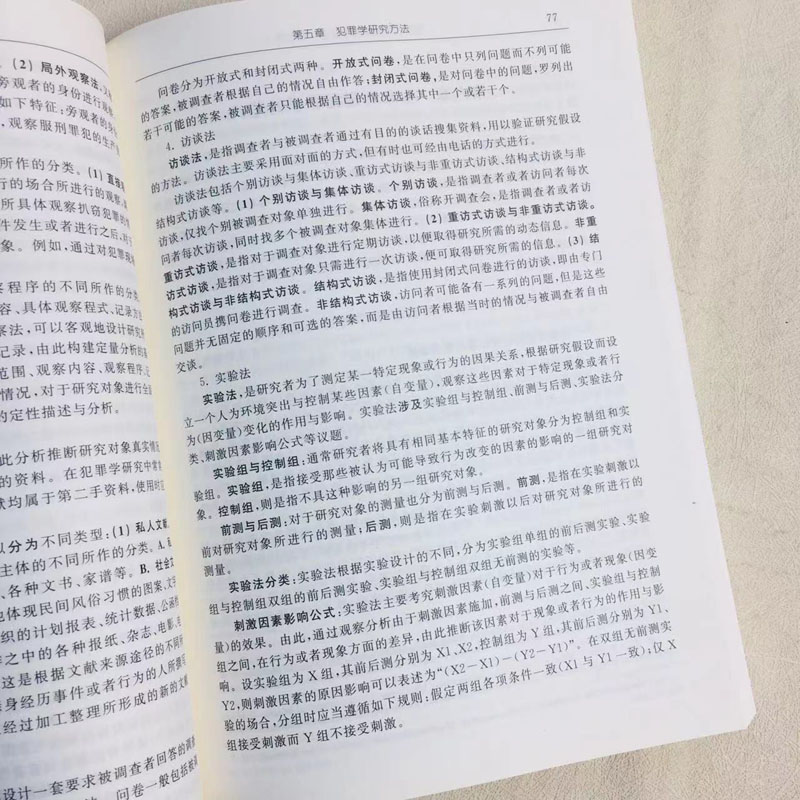 (2) 局外观察法,
旁观者的身份进行
如下特征:旁观者的
,观察服刑罪犯的生产
所作的分类。(1) 直接
行的场合所进行的观察,
所具体观察扒窃犯罪的
件发生或者进行之后,对
象。例如,通过对犯罪
察程序的不同所作的分类
容、具体观察程式、记录方
察法,可以客观地设计研究
记录,由此构建定量分析的
范围、观察内容、观察程序、
情况,对于研究对象进行全
的定性描述与分析。
此分析推断研究对象真实情
的资料。在犯罪学研究中常
献均属于第二手资料,使用时
以分为不同类型:(1) 私人文献
主体的不同所作的分类。A.
、各种文书、家谱等。B. 社会文
地体现民间风俗习惯的图案、文字
织的计划报表、统计数据、公函
等之中的各种报纸、杂志、电影、
这是根据文献来源途径的不同所
身经历事件或者行为的人所撰写
经过加工整理所形成的新的文献
设计一套要求被调查者回答的调
问卷一般包括
第五章 犯罪学研究方法 77
问卷分为开放式和封闭式两种。开放式问卷,是在问卷中只列问题而不列可能
的答案,被调查者根据自己的情况自由作答;封闭式问卷,是对问卷中的问题,罗列出
若干可能的答案,被调查者只能根据自己的情况选择其中一个或若干个。
4. 访谈法
访谈法,是指调查者与被调查者通过有目的的谈话搜集资料,用以验证研究假设
的方法。访谈法主要采用面对面的方式,但有时也可经由电话的方式进行。
访谈法包括个别访谈与集体访谈、重访式访谈与非重访式访谈、结构式访谈与非
结构式访谈等。(1) 个别访谈与集体访谈。个别访谈,是指调查者或者访问者每次
访谈,仅找个别被调查对象单独进行。集体访谈,俗称开调查会,是指调查者或者访
问者每次访谈,同时找多个被调查对象集体进行。(2) 重访式访谈与非重访式访谈。
重访式访谈,是指对于调查对象进行定期访谈,以便取得研究所需的动态信息。非重
访式访谈,是指对于调查对象只需进行一次访谈,便可取得研究所需的信息。(3) 结
构式访谈与非结构式访谈。结构式访谈,是指使用封闭式问卷进行的访谈,即由专门
的访问员携问卷进行调查。非结构式访谈,访问者可能备有一系列的问题,但是这些
问题并无固定的顺序和可选的答案,而是由访问者根据当时的情况与被调查者自由
交谈。
5. 实验法
实验法,是研究者为了测定某一特定现象或行为的因果关系,根据研究假设而设
立一个人为环境突出与控制某些因素(自变量),观察这些因素对于特定现象或者行
为(因变量)变化的作用与影响。实验法涉及实验组与控制组、前测与后测、实验法分
类、刺激因素影响公式等议题。
实验组与控制组:通常研究者将具有相同基本特征的研究对象分为控制组和实
验组。实验组,是指接受那些被认为可能导致行为改变的因素的影响的一组研究对
象。控制组,则是指不具这种影响的另一组研究对象。
前测与后测:对于研究对象的测量也分为前测与后测。前测,是指在实验刺激以
前对研究对象所进行的测量;后测,则是指在实验刺激以后对研究对象所进行的
测量。
实验法分类:实验法根据实验设计的不同,分为实验组单组的前后测实验、实验
组与控制组双组的前后测实验、实验组与控制组双组无前测的实验等。
刺激因素影响公式:实验法主要考究刺激因素(自变量)对于行为或者现象(因变
量)的效果。由此,通过观察分析由于刺激因素施加,前测与后测之间、实验组与控制
组之间,在行为或者现象方面的差异,由此推断该因素对于现象或者行为的作用与影
响。设实验组为 X 组,其前后测分别为 X1、X2,控制组为 Y 组,其前后测分别为 Y1、
Y2,则刺激因素的原因影响可以表述为“(X2−X1)−(Y2−Y1)”。在双组无前测实
验的场合,分组时应当遵循如下规则:假定两组各项条件一致(X1 与 Y1 一致);仅 X
组接受刺激而 Y 组不接受刺激。